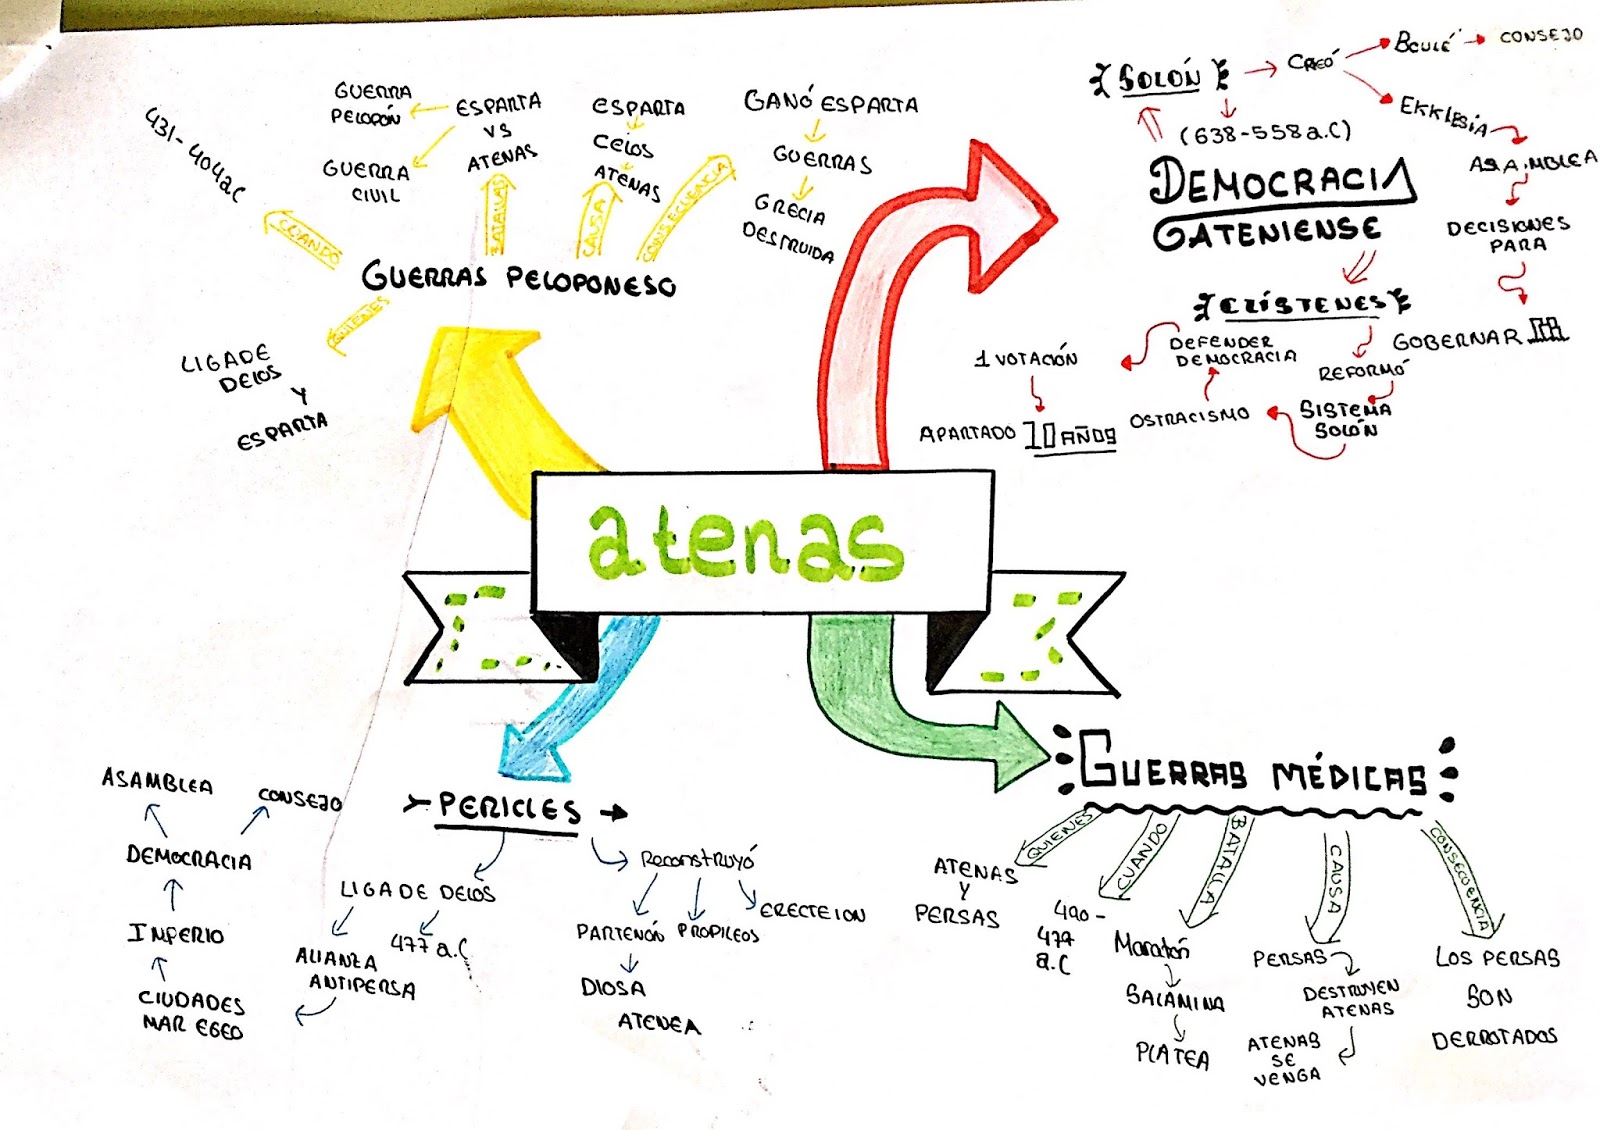 atenas
GUERRAS PELOPONESO
CUANDO
431-404 a.C
QUIENES
LIGA DE
DELOS
Y
ESPARTA
BATALLAS
ESPARTA
VS
ATENAS
GUERRA
PELOPÓN
GUERRA
CIVIL
CAUSA
ESPARTA
CELOS
ATENAS
CONSECUENCIA
GANÓ ESPARTA
GUERRAS
GRECIA
DESTRUIDA
DEMOCRACIA
GATENIENSE
SOLÓN
(638-558 a.C)
CREÓ
BOULÉ
CONSEJO
EKKLESIA
ASAMBLEA
DECISIONES
PARA
GOBERNAR
CLÍSTENES
REFORMÓ
SISTEMA
SOLÓN
OSTRACISMO
DEFENDER
DEMOCRACIA
1 VOTACIÓN
APARTADO 10 AÑOS
PERICLES
LIGA DE DELOS
477 a.C
ALIANZA
ANTIPERSA
CIUDADES
MAR EGEO
IMPERIO
DEMOCRACIA
ASAMBLEA
CONSEJO
Reconstruyó
PARTENÓN
PROPILEOS
ERECTEION
DIOSA
ATENEA
GUERRAS MÉDICAS
QUIENES
ATENAS
Y
PERSAS
CUANDO
490-
477
a.C
BATALLA
Maratón
SALAMINA
PLATEA
CAUSA
PERSAS
DESTRUYEN
ATENAS
ATENAS
SE
VENGA
CONSECUENCIA
LOS PERSAS
SON
DERROTADOS